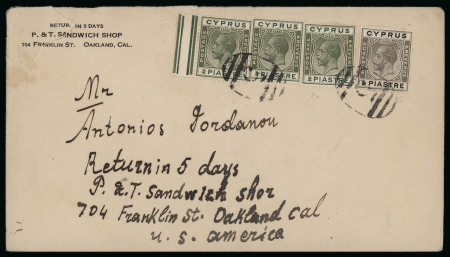 RETURN IN 5 DAYS
P. & T. SANDWICH SHOP
704 FRANKLIN ST. OAKLAND, CAL.
CYPRUS
CYPRUS
CYPRUS
CYPRUS
PIASTRE
PIASTRE
PIASTRE
PIASTRE
Mr
Antonios Iordanou
Return in 5 days
P. & T. Sandwich shor
704 Franklin St. Oakland cal
u. s. america